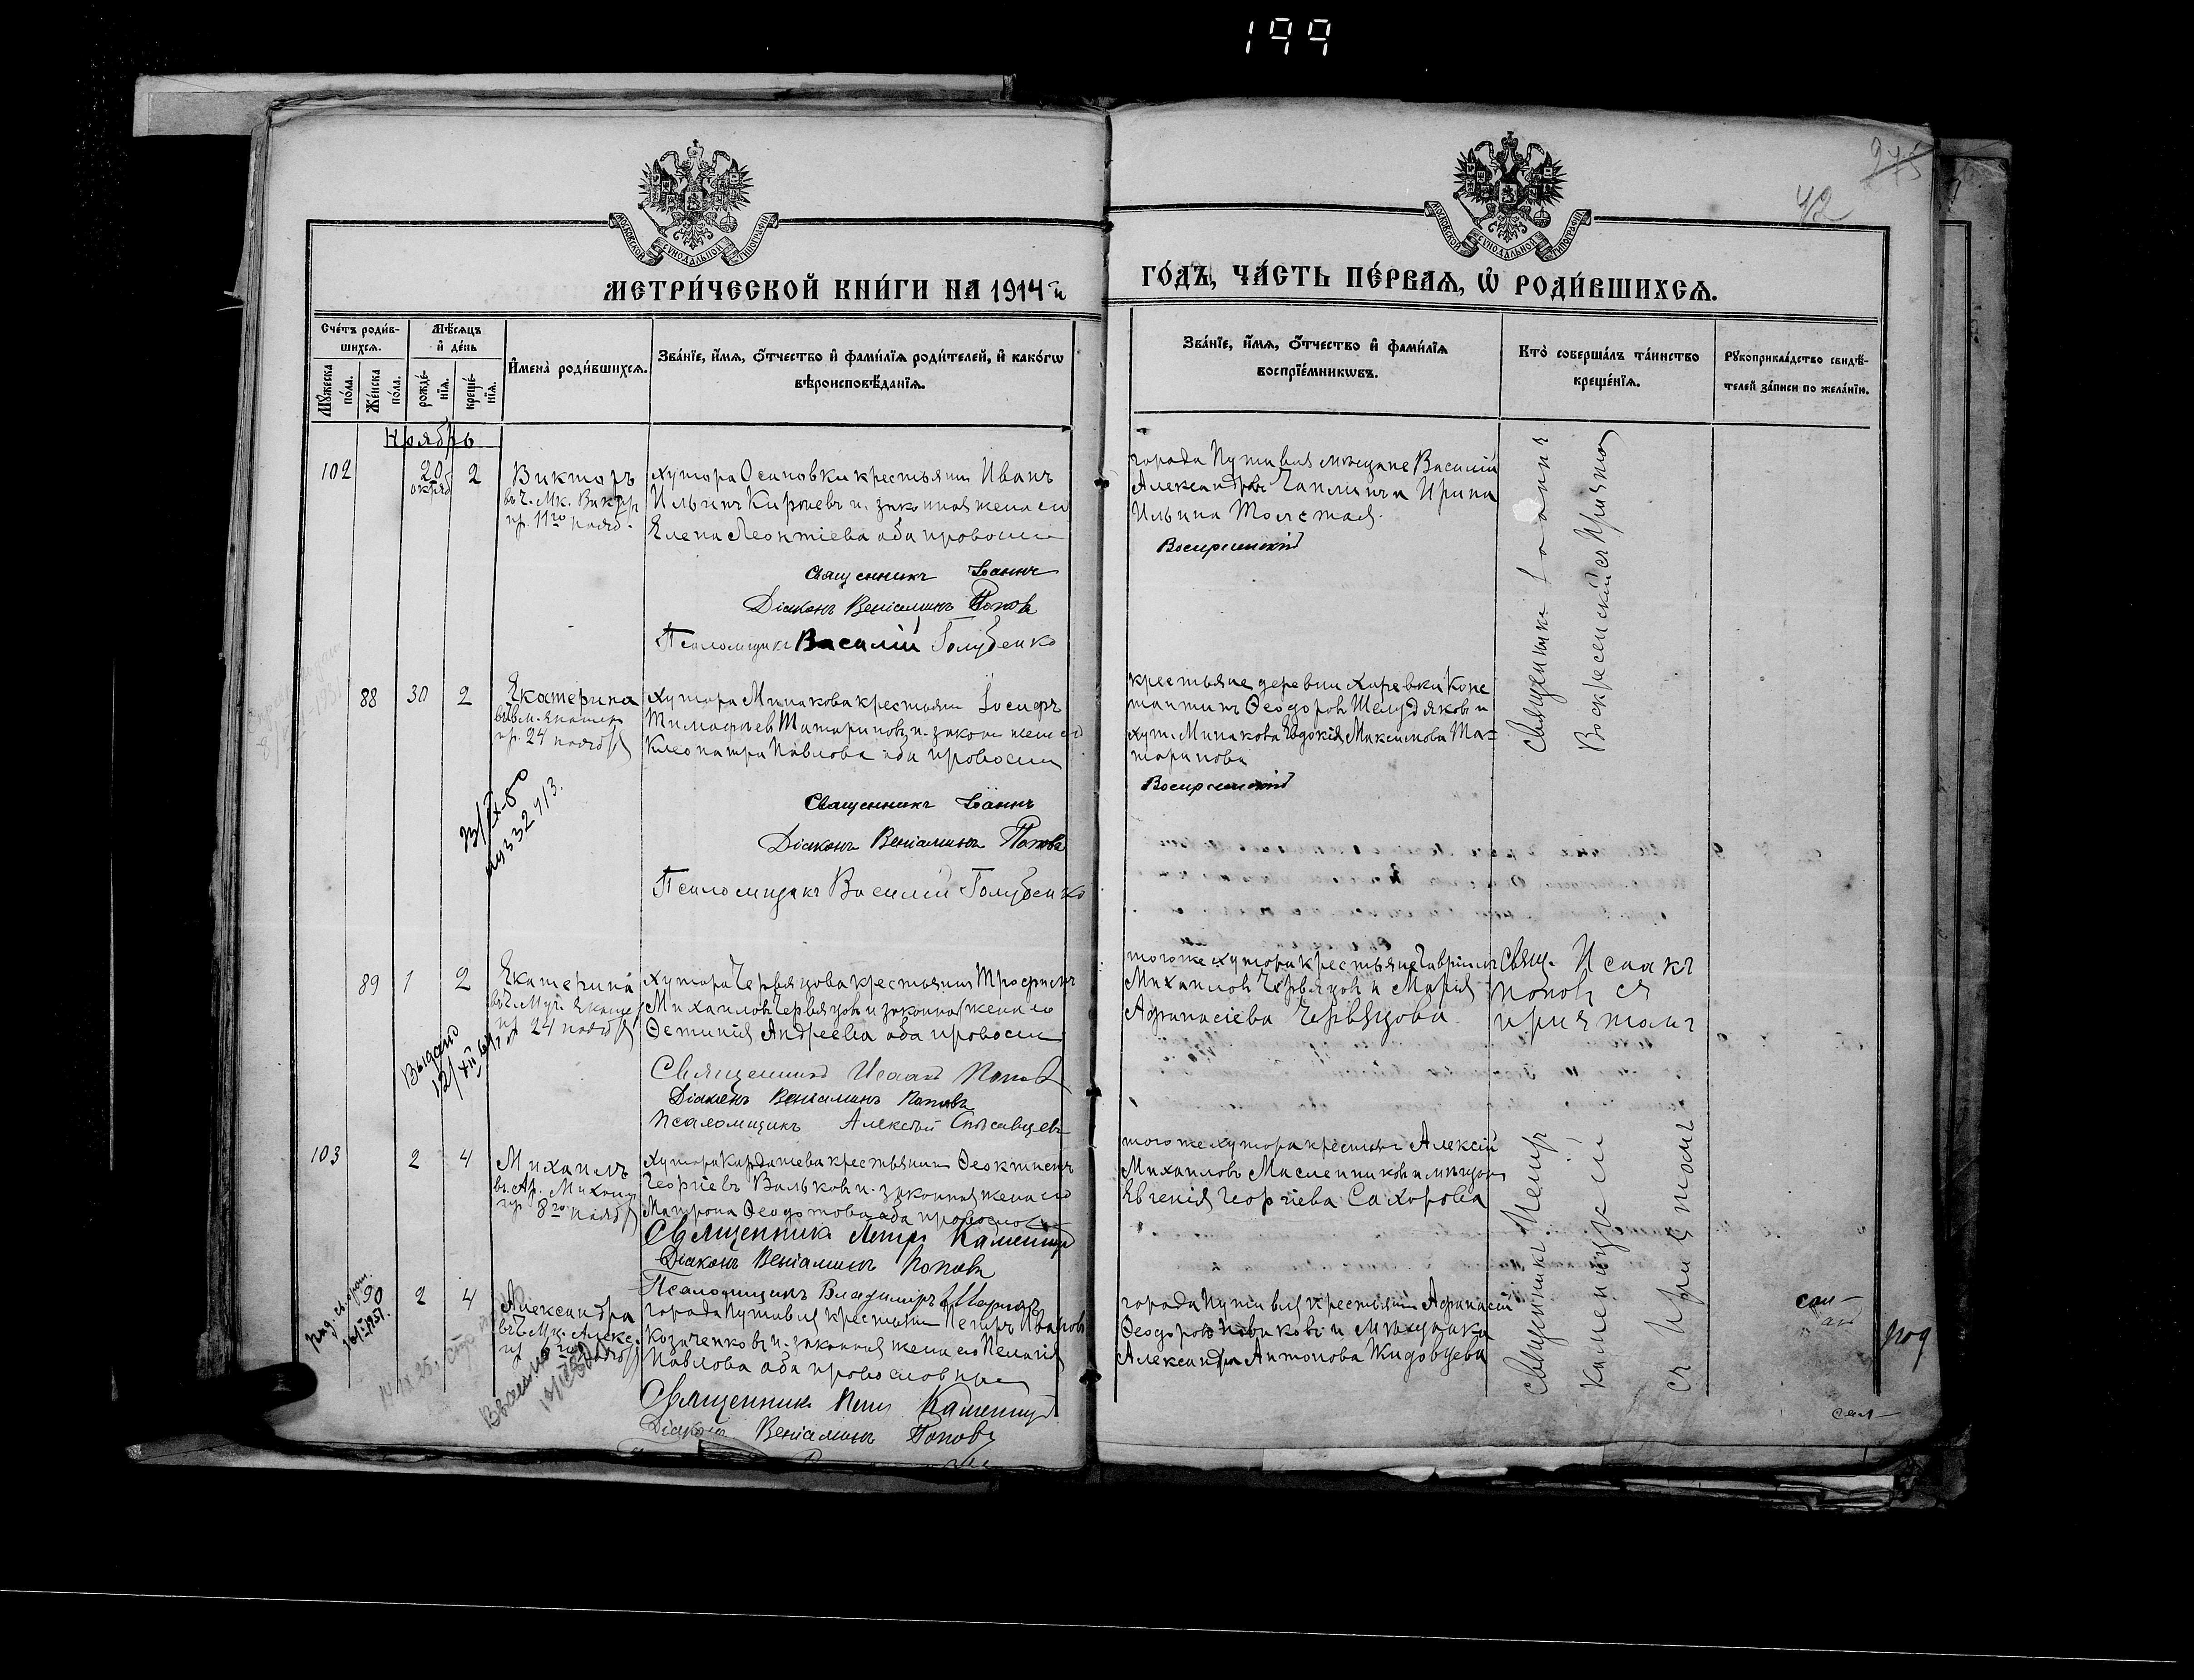 199
275
42
МОСКОВСКОЙ СѴНОДАЛЬНОЙ ТИПОГРАФІИ
МОСКОВСКОЙ СѴНОДАЛЬНОЙ ТИПОГРАФІИ
МЕТРИ́ЧЕСКОЙ КНИ́ГИ НА 1914 й
ГО́ДЪ, ЧА́СТЬ ПЕ́РВАЯ, Ѽ РОДИ́ВШИХСЯ.
Сче́тъ роди́в-
шихся.
Мѣ́сяцъ
и҆ де́нь
Мꙋжеска по́ла.
Же́нска по́ла.
рожде́-
нїѧ.
креще́-
нїѧ.
И҆мена̀ роди́вшихся.
Зва́нїе, и҆́мя, ѻ҆́тчество и҆ фами́лїя роди́телей, и҆ како́гѡ
вѣроисповѣ́данїѧ.
Зва́нїе, и҆́мя, ѻ҆́тчество и҆ фами́лїя
воспрїе́мникѡвъ.
Кто̀ соверша́лъ та́инство
креще́нїѧ.
Рꙋкоприкла́дство свидѣ́-
телей за́писи по жела́нїю.
Ноябрь
102
20
октяб
2
Викторъ
въ ч. Мк. Виктор
пр. 11го нояб.
хутора Осиповки крестьянин Иванъ
Ильинъ Киреевъ и. законная жена его
Елена Леонтіева оба православн
Священникъ Іоаннъ
Діаконъ Веніаминъ Поповъ
Псаломщикъ Василій Голубенко
города Путивля мѣщане Василій
Александровъ Чаплинъ и Ирина
Ильина Толстая.
Воскресенскій
Священникъ Іоаннъ
Воскресенскій съ Причтомъ
88
30
2
Екатерина
въ ч. Вм. Екатер
пр. 24 ноября
хутора Минакова крестьянин Іосифъ
Тимофеев Татаринов и. закон жена его
Клеопатра Павлова оба православн
Священникъ Іоаннъ
Діаконъ Веніаминъ Поповъ
Псаломщикъ Василій Голубенко
крестьяне деревни Харевки Конс
тантинъ Ѳеодоров Шелудяков и
хут. Минакова Евдокія Максимова Та=
таринова
Воскресенскій
89
1
2
Екатерина
въ ч. Муч. Екатер
пр 24 ноября
Выдано
12/XII
хутора Червяцова крестьянин Трофимъ
Михаилов Червяцов и законная жена его
Ѳетинія Андреева оба православн
Священникъ Исаакъ Поповъ
Діаконъ Веніаминъ Поповъ
Псаломщикъ Алексѣй
того же хутора крестьяне Гавріилъ
Михаилов Червяцов и Марія
Афанасіева Червяцова
Свящ. Исаакъ
Поповъ съ
причтомъ
103
2
4
Михаилъ
въ ч. Ар. Михаил
пр 8го нояб
хутора Кардашева крестьянин Ѳеоктистъ
Георгіевъ Вальков и. законная жена его
Матрона Ѳеодотова оба православн
Священникъ Петръ Каменецкій
Діаконъ Веніаминъ Поповъ
Псаломщикъ Владиміръ
того же хутора крестьян Алексій
Михаиловъ Масленников и мѣщан
Евгенія Георгіева Сахорова
Священникъ Петръ
Каменецкій
съ Причтомъ
90
2
4
Александра
въ ч. Мк. Алекс.
пр 6го нояб
города Путивля крестьянин Петръ Иванов
Козаченковъ и. законная жена его Пелагія
Павлова оба православные
Священникъ Петръ Каменецкій
Діаконъ Веніаминъ Поповъ
города Путивля крестьянин Афанасій
Ѳеодоров Новиковъ и мѣщанка
Александра Антонова Жидовцева